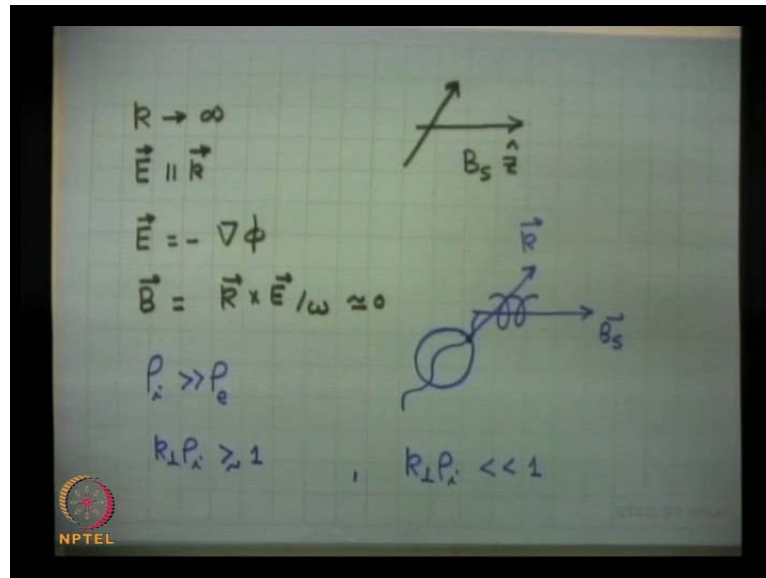 k → ∞
E⃗ || k⃗
E⃗ = - ∇ϕ
B⃗ = k⃗ × E⃗ /ω ≃ 0
ρᵢ >> ρₑ
k⊥ρᵢ ≳ 1 , k⊥ρᵢ << 1
Bₛ ẑ
k⃗
B⃗ₛ
NPTEL